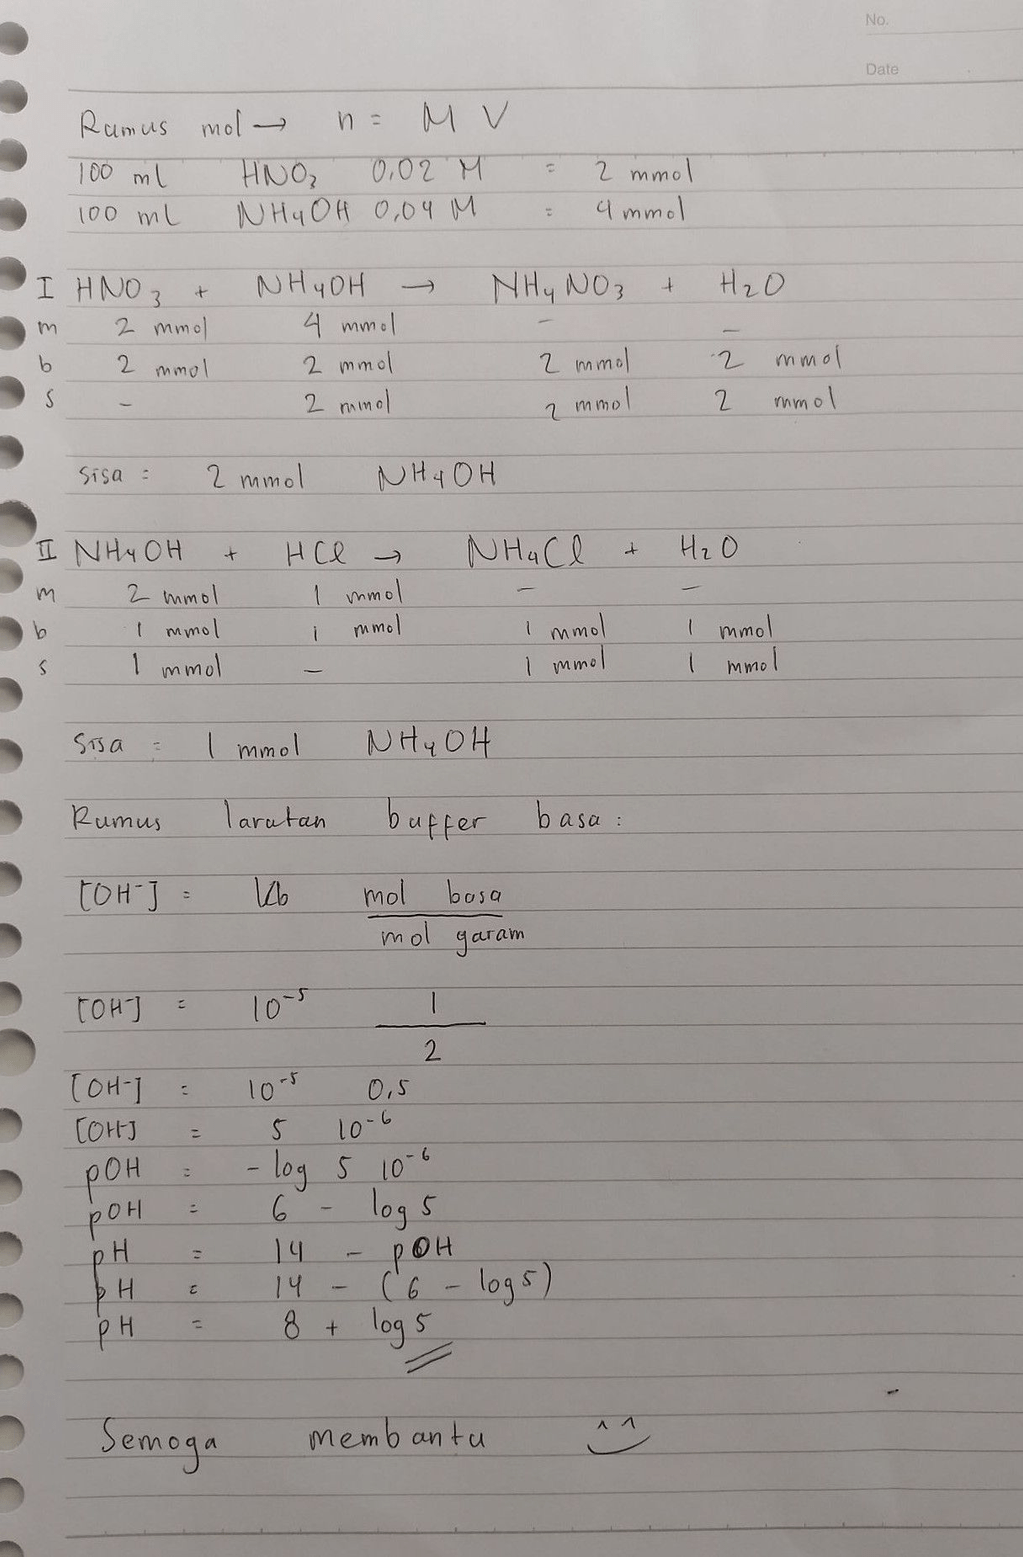 No.
Date
Rumus mol → n = M V
100 ml HNO₃ 0,02 M = 2 mmol
100 ml NH₄OH 0,04 M = 4 mmol
I HNO₃ + NH₄OH → NH₄NO₃ + H₂O
m 2 mmol 4 mmol - -
b 2 mmol 2 mmol 2 mmol 2 mmol
s - 2 mmol 2 mmol 2 mmol
Sisa = 2 mmol NH₄OH
II NH₄OH + HCl → NH₄Cl + H₂O
m 2 mmol 1 mmol - -
b 1 mmol 1 mmol 1 mmol 1 mmol
s 1 mmol - 1 mmol 1 mmol
Sisa = 1 mmol NH₄OH
Rumus larutan buffer basa :
[OH⁻] = Kb mol basa
mol garam
[OH⁻] = 10⁻⁵ 1
2
[OH⁻] = 10⁻⁵ 0,5
[OH⁻] = 5 10⁻⁶
pOH = - log 5 10⁻⁶
pOH = 6 - log 5
pH = 14 - pOH
pH = 14 - (6 - log 5)
pH = 8 + log 5
Semoga membantu